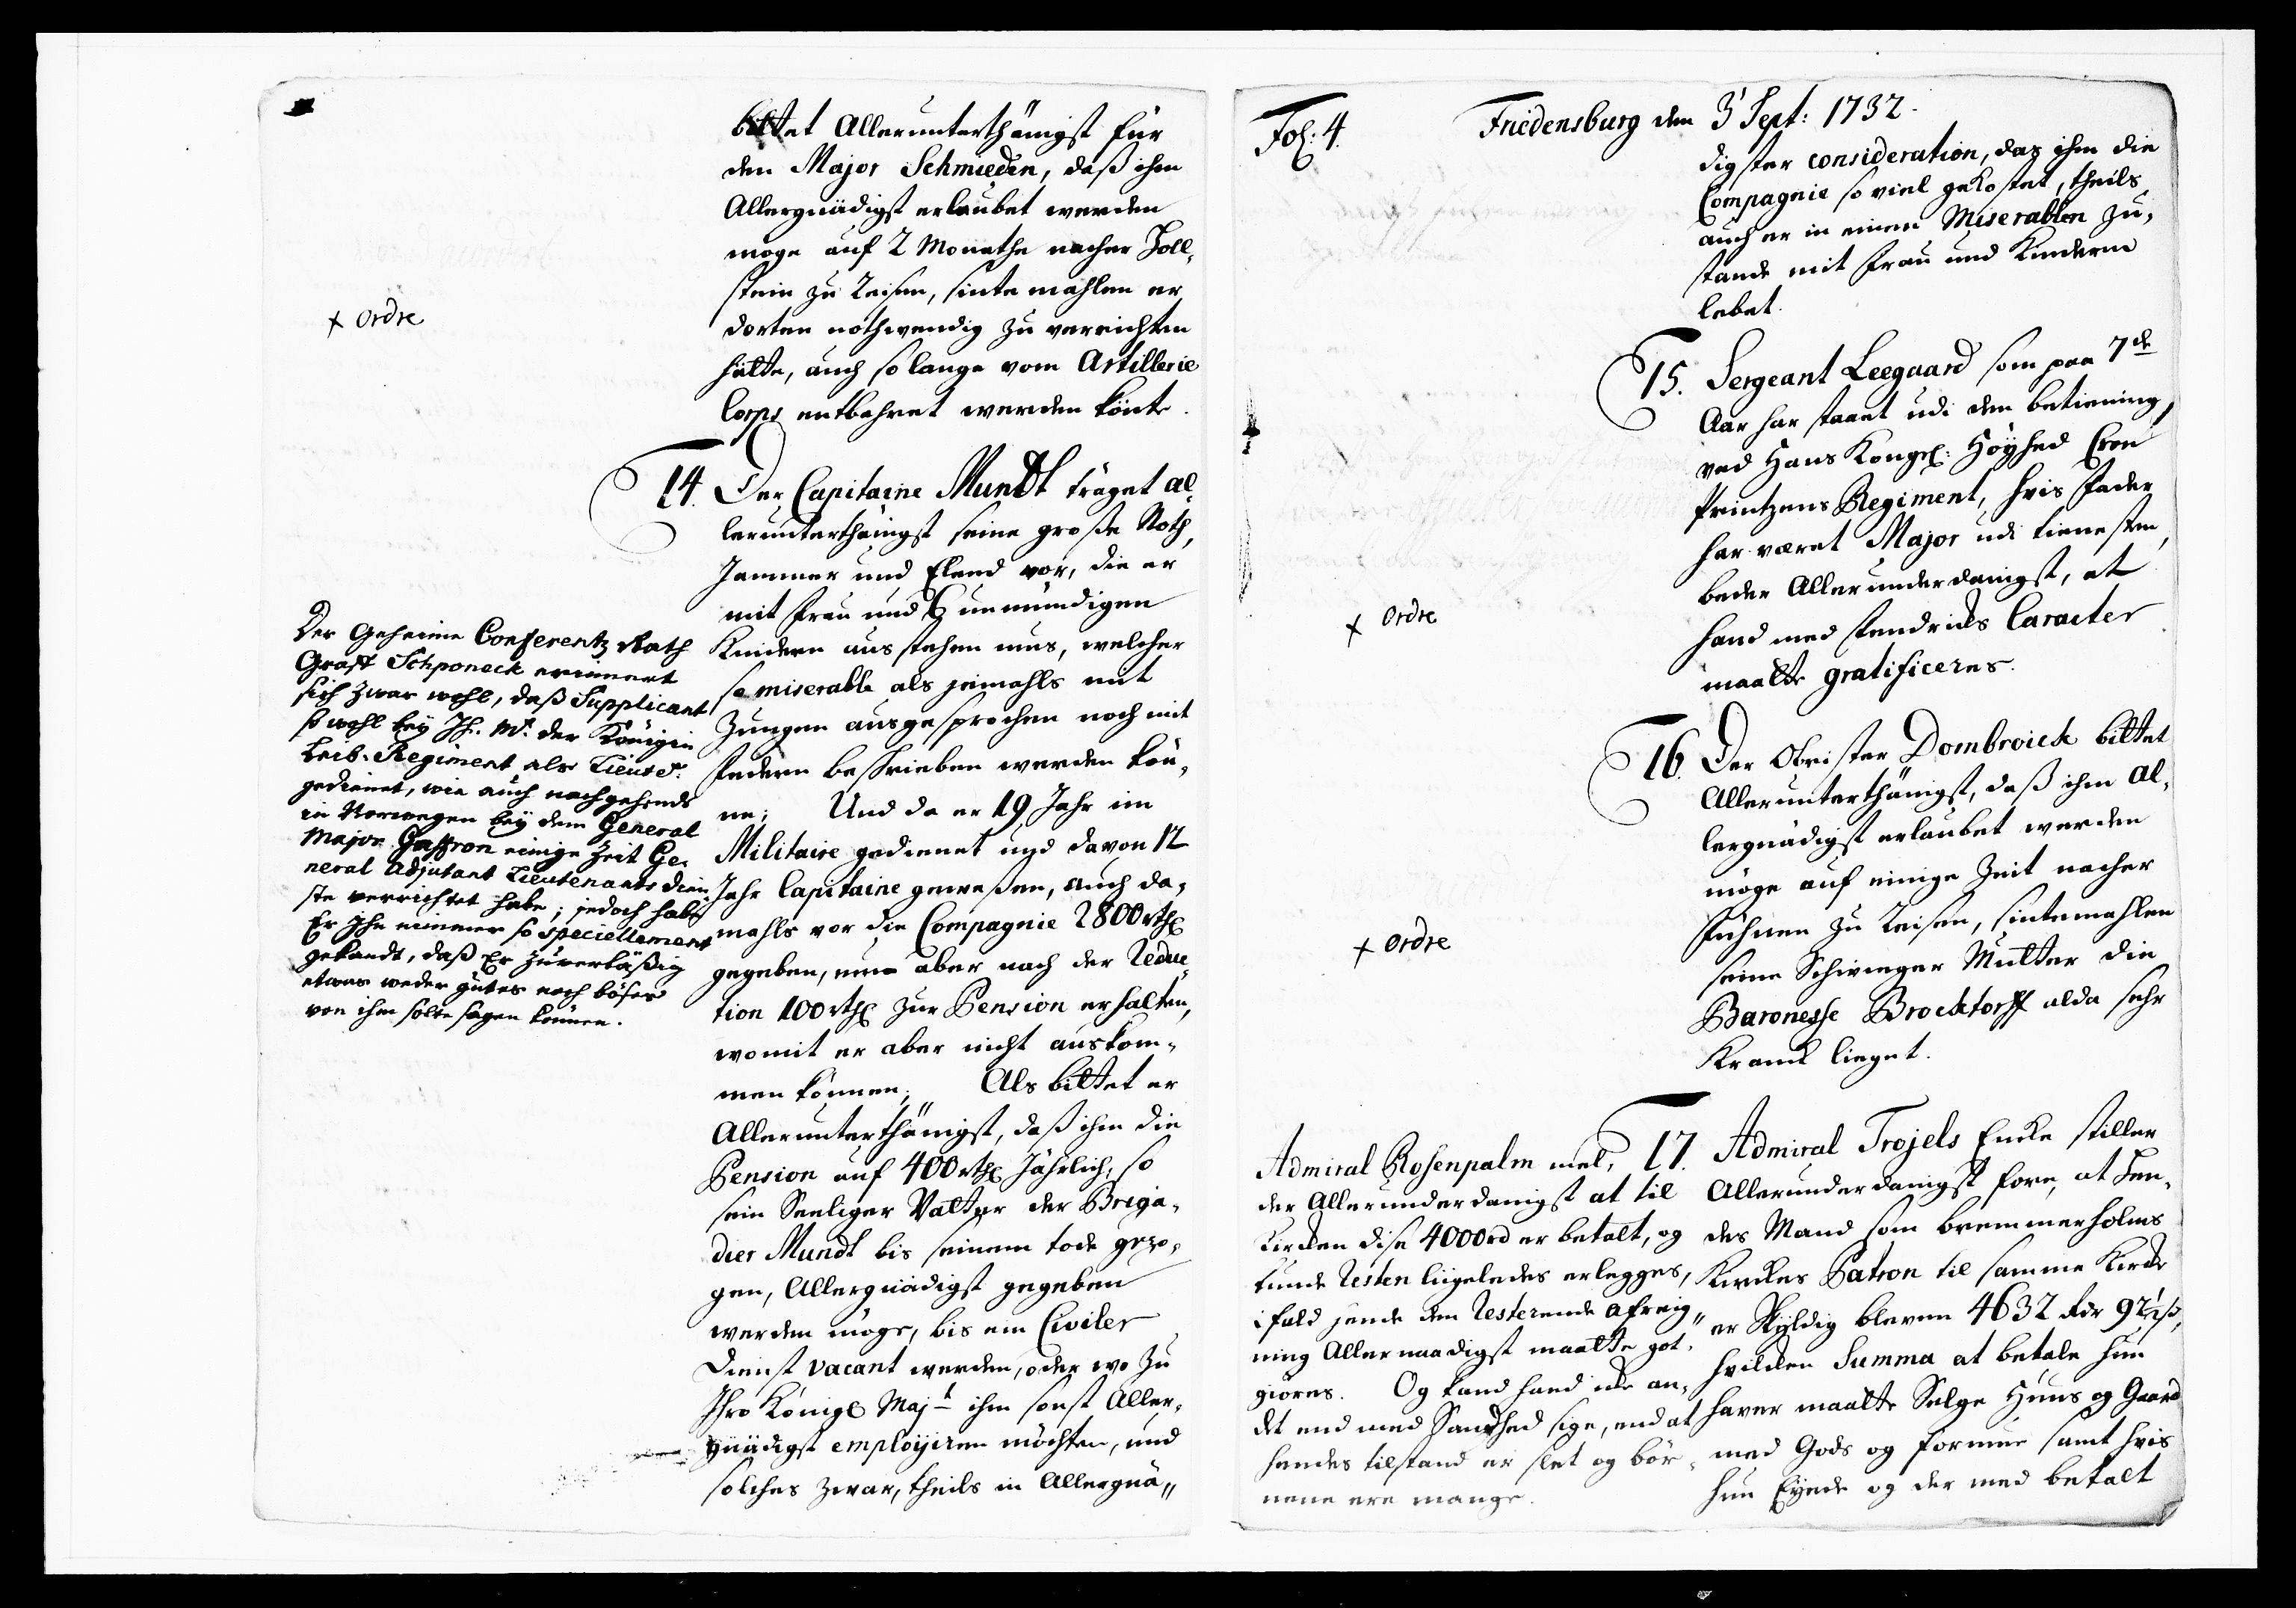 bittet Allerunterthänigst für
den Major Schmieden, daß ihm
Allergnädigst erlaubet werden
möge auf 2 Monathe nacher Holl,
stein zu Reisen, sintemahlen er
dorten nothwendig zu verrichten
hätte, auch solange vom Artillerie
Corps entbehret werden könte.
x ordre
14. Der Capitaine Mundt träget al,
lerunterthänigst seine große Noth,
Jammer und Elend vor, die er
mit Frau und unmündigen
Kindern ausstehen mus, welcher
so miserable als jemahls mit
Zungen ausgesprochen noch mit
Federn beschrieben werden kön,
ne; Und da er 19 Jahr im
Militaire gedienet und davon 12
Jahr Capitaine geweßen, auch da,
mahls vor die Compagnie 2800 rthl
gegeben, nun aber nach der Reduc,
tion 100 rthl zur Pension erhalten,
womit er aber nicht auskom,
men können; Als bittet er
Allerunterthänigst, daß ihm die
Pension auf 400 rthl Jährlich, so
sein Seeliger Vatter der Briga,
dier Mundt bis seinem tode gezo,
gen, Allergnädigst gegeben
werden möge, bis ein Civiler
Dienst vacant werden, oder wo zu
Ihro Königl Majt ihm sonst Aller,
gnädigst employiren möchten, und
solches zwar, theils in Allergnä,,
Der Geheime Conferentz Rath
Graff Schponeck erinnert
sich zwar wohl, daß Supplicant
so wohl bey Ih. Mt. der Königin
Leib-Regiment als Lieutet.
gedienet, wie auch nachgehends
in Norwegen bey dem General
Major Gaffron einige Zeit Ge,
neral Adjutant Lieutenants dien
ste verrichtet habe; jedoch habe
Er Ihn nimmer so speciellement
gekandt, daß Er zuverläßig
etwas weder gutes noch böses
von ihm solte sagen können.
Fol: 4. Friedensburg den 3 Sept: 1732.
digster consideration, das ihm die
Compagnie so viel gekostet, theils
auch er in einen Miserablen Zu,
stande mit Frau und Kindern
lebet.
15. Sergeant Leegaard som paa 7de
Aar har staaet udi den betiening
ved Hans Kongl: Höyhed Cron
Printzens Regiment, hvis Fader
har været Major udi tienesten,
beder Allerunderdanigst, at
hand med Fendricks Caracter
maatte gratificeres.
x ordre
16. Der Obrister Dombroick bittet
Allerunterthänigst, daß ihm Al,
lergnädigst erlaubet werden
möge auf einige Zeit nacher
Fühnen zu Reisen, sintemahlen
seine Schwieger Mutter die
Baronesse Brocktorff alda sehr
Kranck lieget.
x ordre
17. Admiral Trojels Encke stiller
Allerunderdanigst fore, at hen,
des Mand som bremmerholms
Kirckes Patron til samme Kircke
er skyldig bleven 4632 Rdr 92½ ß,
hvilcken Summa at betale hun
haver maatte Selge Huus og Gaard
med Gods og formue samt hvis
hun Eyede og der med betalt
Admiral Rosenpalm mel,
der Allerunderdanigst at til
Kircken dise 4000 rd er betalt, og
kunde Resten liigeledes erlegges,
ifald hende den Resterende afreig,,
ning Allernaadigst maatte got,
giöres. Og kand hand icke an,
det end med Sandhed sige, end at
hendes tilstand er slet og bör,
nene ere mange.